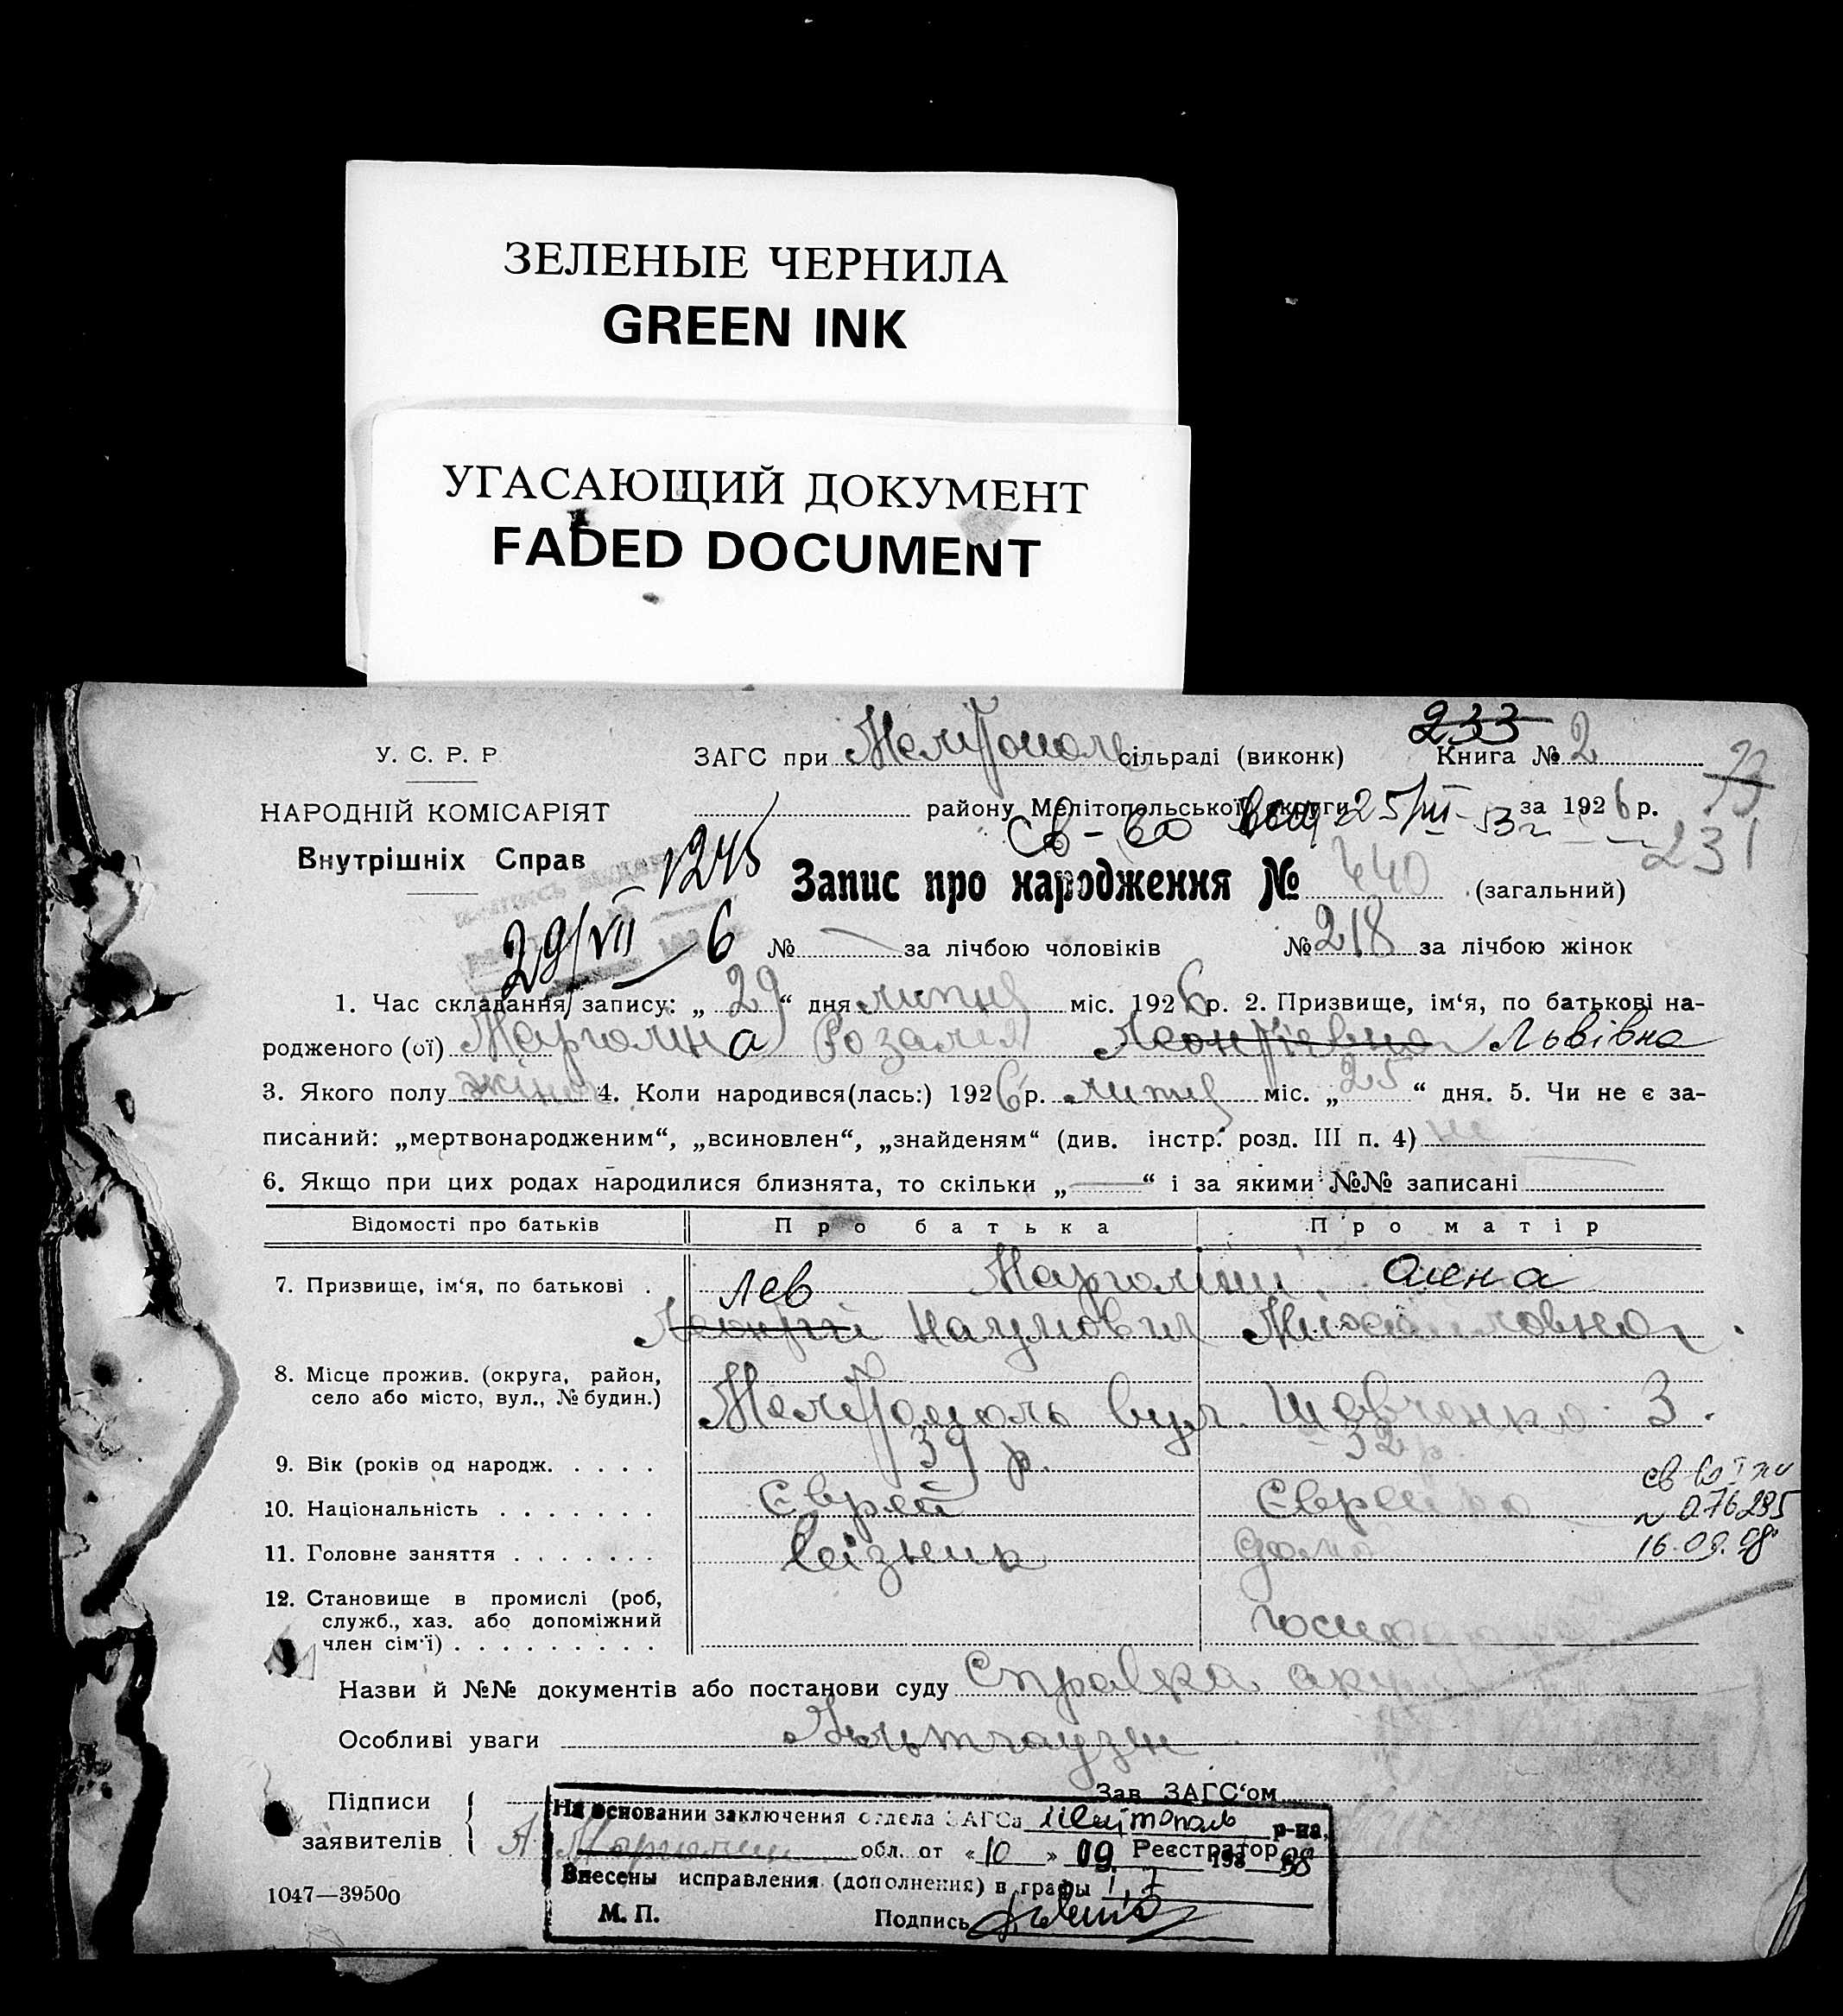 ЗЕЛЕНЫЕ ЧЕРНИЛА
GREEN INK
УГАСАЮЩИЙ ДОКУМЕНТ
FADED DOCUMENT
233
У. С. Р. Р. ЗАГС при Мелітополь сільраді (виконк) Книга № 2
НАРОДНІЙ КОМІСАРІЯТ району Мелітопольської округи за 1926 р.
св-во 25/III-53г 231
Внутрішніх Справ 1245 Запис про народження № 440 (загальний)
29/VII 6 № — за лічбою чоловіків № 218 за лічбою жінок
1. Час складання запису: „ 29 “ дня липня міс. 1926 р. 2. Призвище, ім‘я, по батькові на-
родженого (ої) Марголіна Розалія Львівна
3. Якого полу жіноч. 4. Коли народився(лась:) 1926 р. липня міс. „ 25 “ дня. 5. Чи не є за-
писаний: „мертвонародженим“, „всиновлен“, „знайденям“ (див. інстр. розд. III п. 4) ні
6. Якщо при цих родах народилися близнята, то скільки „ — “ і за якими №№ записані
Відомості про батьків Про батька Про матір
7. Призвище, ім‘я, по батькові . Лев Марголіни Олена
Наумович Михайловна
8. Місце прожив. (округа, район,
село або місто, вул., № будин.) Мелітополь вул. Шевченко 3.
9. Вік (років од народж. . . . . 39 р. 32 р.
10. Національність . . . . . . . Єврей Єврейка
св во
№ 076295
16.09.98
11. Головне заняття . . . . . . . Візник дома
12. Становище в промислі (роб,
служб., хаз. або допоміжний
член сім‘ї) . . . . . . . . .
Назви й №№ документів або постанови суду Справка
Особливі уваги
Підписи Зав. ЗАГС‘ом
заявителів Реєстратор
А. Марголин
На основании заключения отдела ЗАГСа Мелітополь р-на,
обл. от « 10 » 09 198 98
Внесены исправления (дополнения) в графы 1, 7
М. П. Подпись
1047—39500